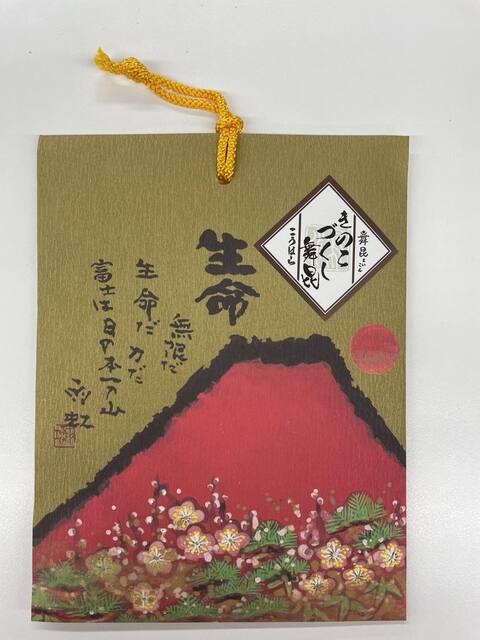 舞昆
こうはら
きのこ
づくし
舞昆
生命
無限だ
生命だ力だ
富士は日の本一の山